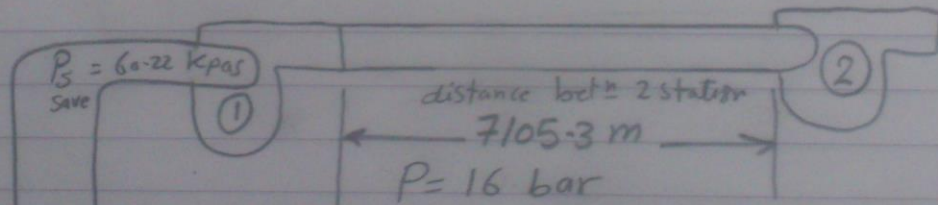 Ps = 60.22 kpas
save
①
②
distance betⁿ 2 station
7105.3 m
P = 16 bar